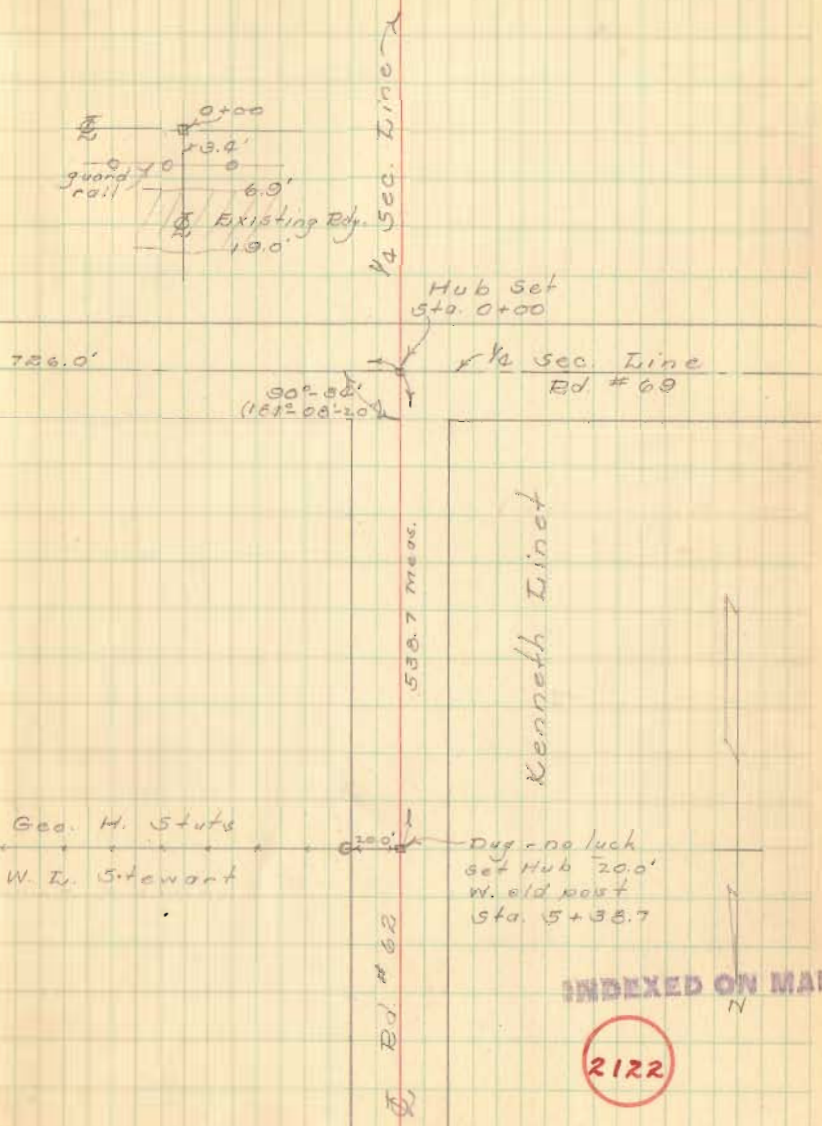 1/4 Sec. Line
0+00
℄
3.4'
guard rail
6.9'
℄ Existing Rdy.
19.0'
Hub Set
Sta. 0+00
726.0'
1/4 Sec. Line
Rd. # 69
90°-34'
(181°-08'-20"
538.7 meas.
Kenneth Linet
Geo. H. Stuts
20.0'
W. L. Stewart
Dug - no luck
set Hub 20.0'
W. old post
Sta. 5+38.7
℄ Rd. # 62
INDEXED ON MA
N
2122